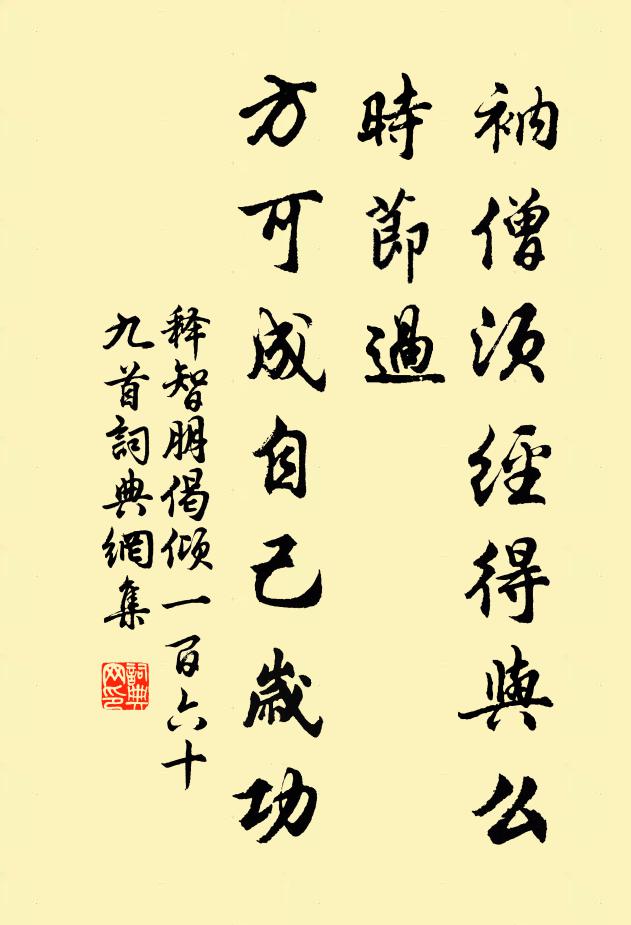 衲僧須經得與么
時節過
方可成自己歲功
释智朋偈傾一百六十
九首詞典網集
詞典网印